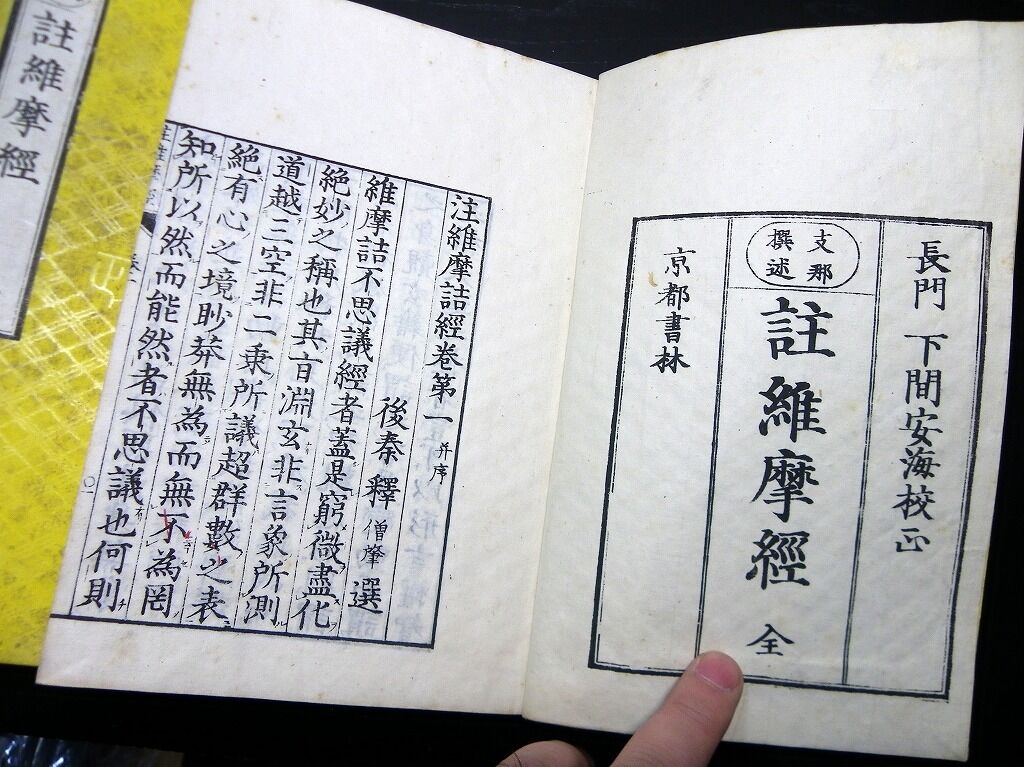 長門 下間安海校正
支那
撰述
註維摩經 全
京都書林
注維摩詰經卷第一 并序
後秦 釋 僧肇 選
維摩詰不思議經者蓋是窮微盡化
絶妙之稱也其旨淵玄非言象所測
道越三空非二乗所議超群數之表
絶有心之境眇莽無為而無不為罔
知所以然而能然者不思議也何則
註維摩經